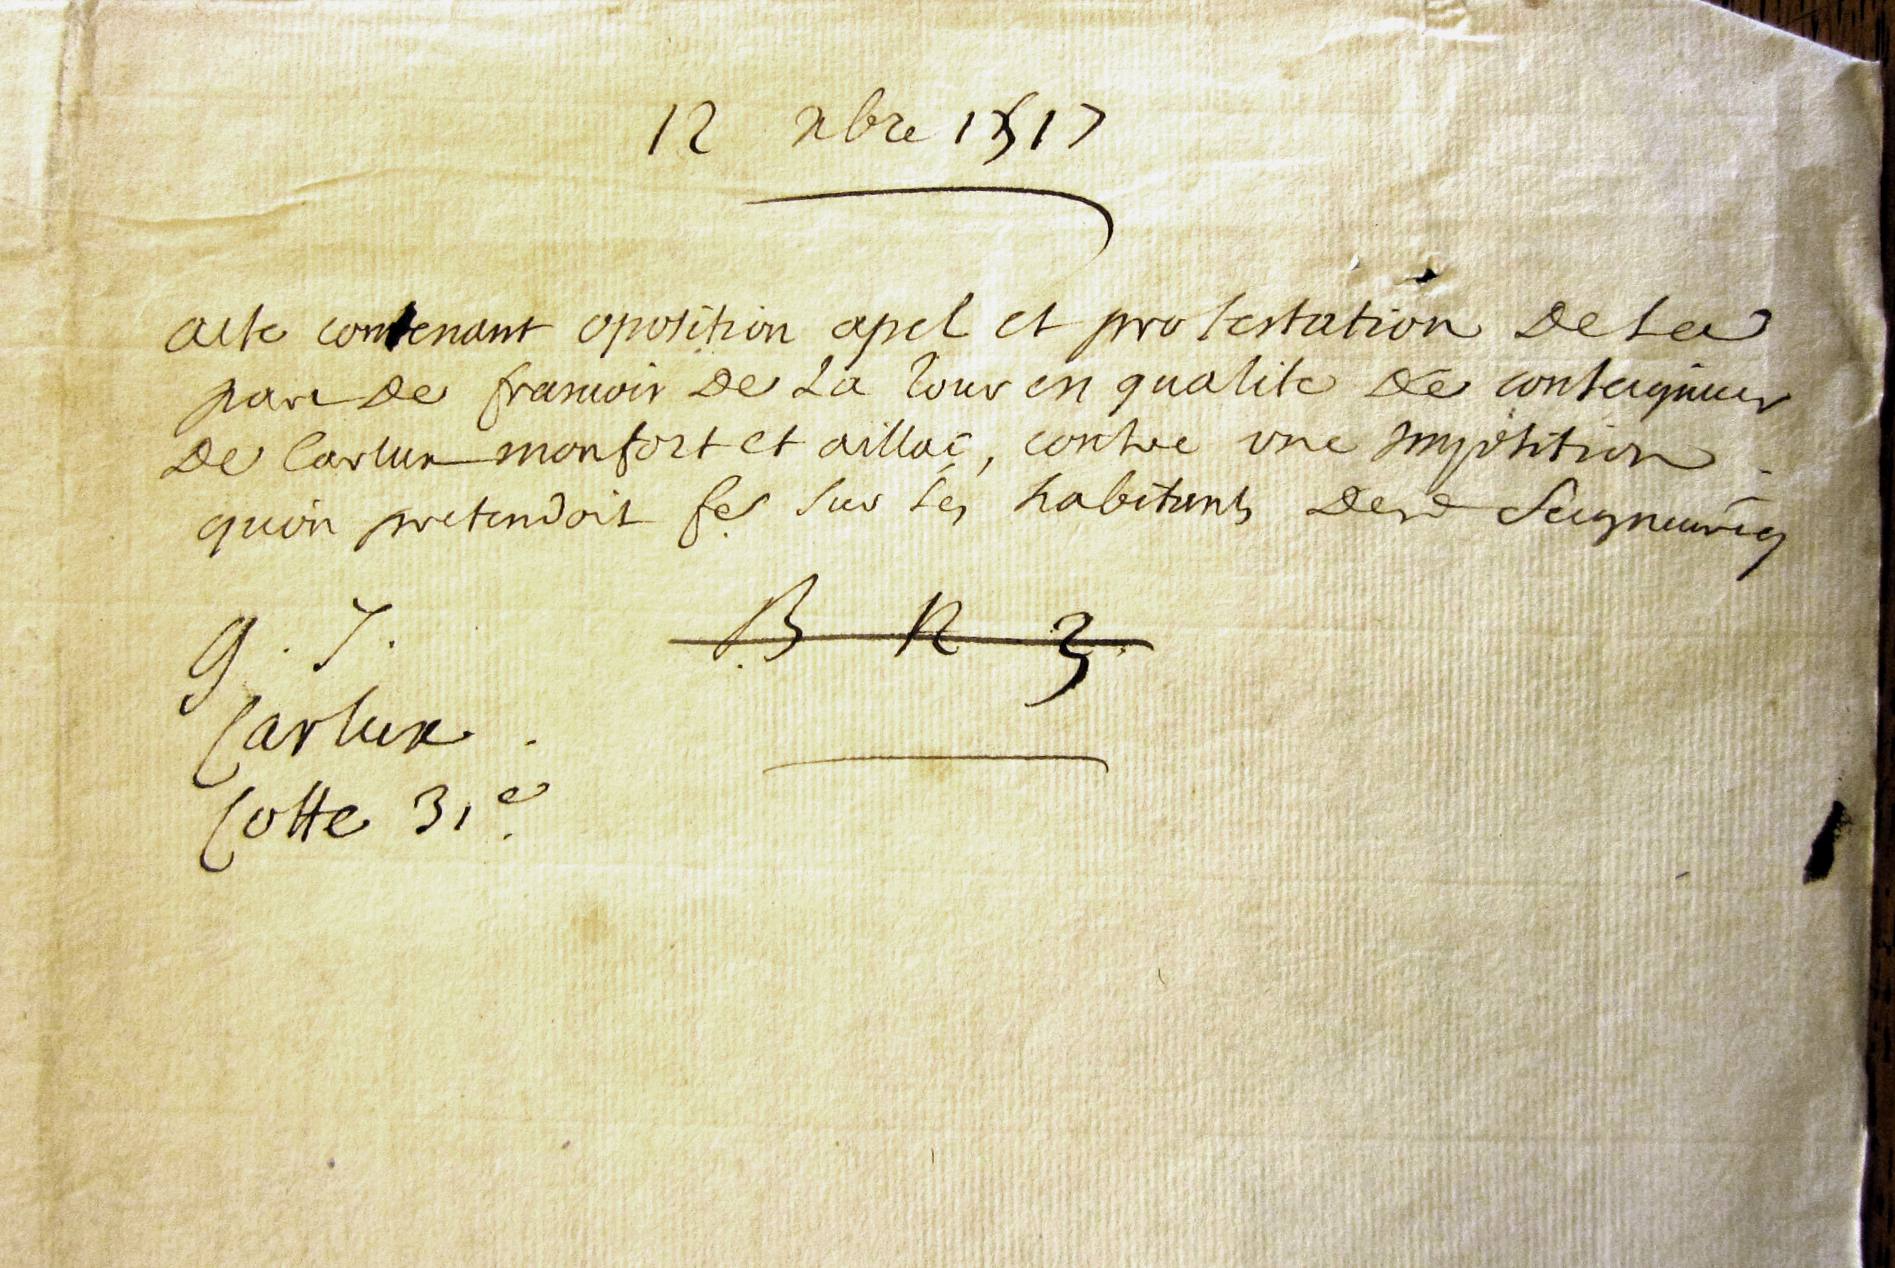 12 xbre 1517
acte contenant oposition apel et protestation de la
part de francois de La tour en qualite de conseigneur
de Carlux monfort et aillac, contre une Imposition
quon pretendoit fe sur les habitants desd Seigneuries
G. 7.
B N 3
Carlux.
Cotte 31e